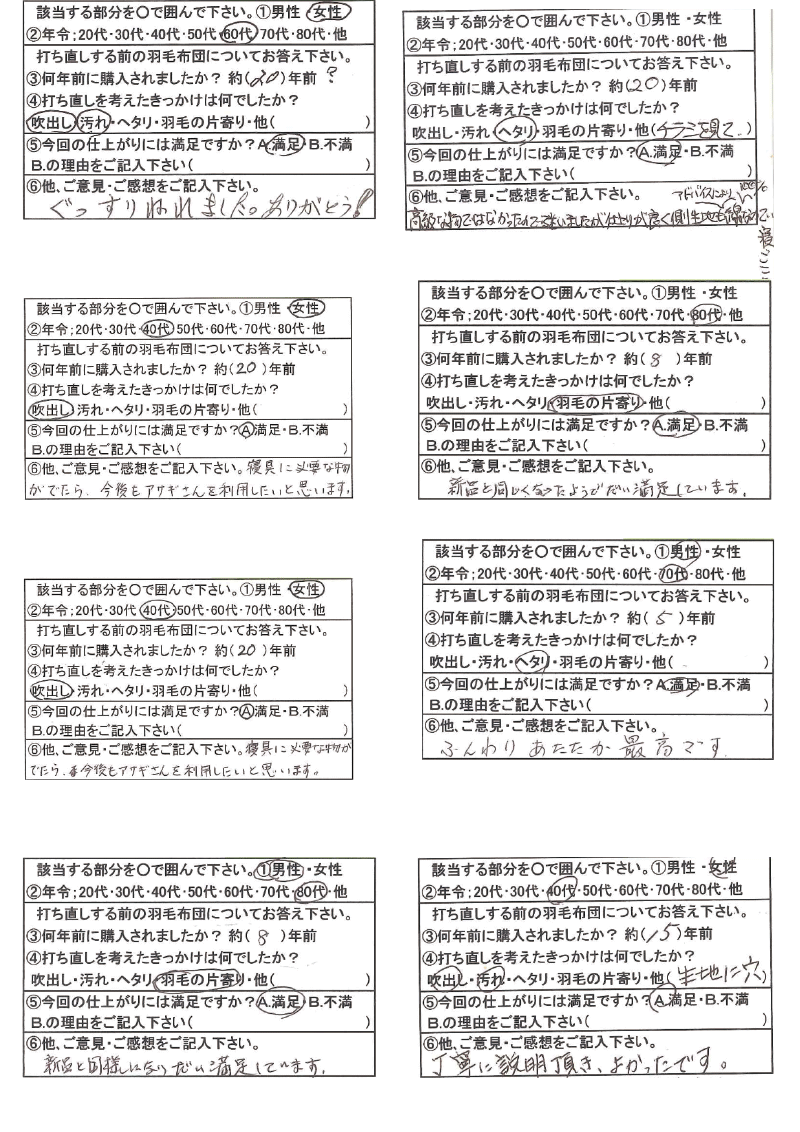 該当する部分を〇で囲んで下さい。①男性・女性
②年令;20代・30代・40代・50代・60代・70代・80代・他
打ち直しする前の羽毛布団についてお答え下さい。
③何年前に購入されましたか? 約(20)年前 ?
④打ち直しを考えたきっかけは何でしたか?
吹出し・汚れ・ヘタリ・羽毛の片寄り・他( )
⑤今回の仕上がりには満足ですか?A.満足・B.不満
B.の理由をご記入下さい( )
⑥他、ご意見・ご感想をご記入下さい。
ぐっすりねれました。ありがとう!
該当する部分を〇で囲んで下さい。①男性・女性
②年令;20代・30代・40代・50代・60代・70代・80代・他
打ち直しする前の羽毛布団についてお答え下さい。
③何年前に購入されましたか? 約(20)年前
④打ち直しを考えたきっかけは何でしたか?
吹出し・汚れ・ヘタリ・羽毛の片寄り・他(チラシを見て)
⑤今回の仕上がりには満足ですか?A.満足・B.不満
B.の理由をご記入下さい( )
⑥他、ご意見・ご感想をご記入下さい。 アドバイスにより
高級な物ではなかったので迷いましたが仕上りが良く側生地も
該当する部分を〇で囲んで下さい。①男性・女性
②年令;20代・30代・40代・50代・60代・70代・80代・他
打ち直しする前の羽毛布団についてお答え下さい。
③何年前に購入されましたか? 約(20)年前
④打ち直しを考えたきっかけは何でしたか?
吹出し・汚れ・ヘタリ・羽毛の片寄り・他( )
⑤今回の仕上がりには満足ですか?A満足・B.不満
B.の理由をご記入下さい( )
⑥他、ご意見・ご感想をご記入下さい。寝具に必要な物
がでたら、今後もアサギさんを利用したいと思います。
該当する部分を〇で囲んで下さい。①男性・女性
②年令;20代・30代・40代・50代・60代・70代・80代・他
打ち直しする前の羽毛布団についてお答え下さい。
③何年前に購入されましたか? 約(8)年前
④打ち直しを考えたきっかけは何でしたか?
吹出し・汚れ・ヘタリ・羽毛の片寄り・他( )
⑤今回の仕上がりには満足ですか?A.満足・B.不満
B.の理由をご記入下さい( )
⑥他、ご意見・ご感想をご記入下さい。
新品と同じくなったようでだい満足しています。
該当する部分を〇で囲んで下さい。①男性・女性
②年令;20代・30代・40代・50代・60代・70代・80代・他
打ち直しする前の羽毛布団についてお答え下さい。
③何年前に購入されましたか? 約(20)年前
④打ち直しを考えたきっかけは何でしたか?
吹出し・汚れ・ヘタリ・羽毛の片寄り・他( )
⑤今回の仕上がりには満足ですか?A満足・B.不満
B.の理由をご記入下さい( )
⑥他、ご意見・ご感想をご記入下さい。寝具に必要な物が
でたら、今後もアサギさんを利用したいと思います。
該当する部分を〇で囲んで下さい。①男性・女性
②年令;20代・30代・40代・50代・60代・70代・80代・他
打ち直しする前の羽毛布団についてお答え下さい。
③何年前に購入されましたか? 約(5)年前
④打ち直しを考えたきっかけは何でしたか?
吹出し・汚れ・ヘタリ・羽毛の片寄り・他( )
⑤今回の仕上がりには満足ですか?A.満足・B.不満
B.の理由をご記入下さい( )
⑥他、ご意見・ご感想をご記入下さい。
ふんわり あたたか 最高です
該当する部分を〇で囲んで下さい。①男性・女性
②年令;20代・30代・40代・50代・60代・70代・80代・他
打ち直しする前の羽毛布団についてお答え下さい。
③何年前に購入されましたか? 約(8)年前
④打ち直しを考えたきっかけは何でしたか?
吹出し・汚れ・ヘタリ・羽毛の片寄り・他( )
⑤今回の仕上がりには満足ですか?A.満足・B.不満
B.の理由をご記入下さい( )
⑥他、ご意見・ご感想をご記入下さい。
新品と同様になりだい満足しています。
該当する部分を〇で囲んで下さい。①男性・女性
②年令;20代・30代・40代・50代・60代・70代・80代・他
打ち直しする前の羽毛布団についてお答え下さい。
③何年前に購入されましたか? 約(15)年前
④打ち直しを考えたきっかけは何でしたか?
吹出し・汚れ・ヘタリ・羽毛の片寄り・他(生地に穴)
⑤今回の仕上がりには満足ですか?A.満足・B.不満
B.の理由をご記入下さい( )
⑥他、ご意見・ご感想をご記入下さい。
丁寧に説明頂き、よかったです。